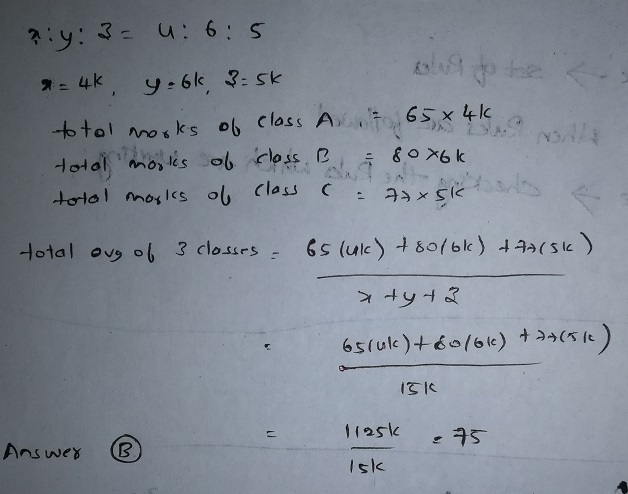 x : y : z = 4 : 6 : 5
x = 4k, y = 6k, z = 5k
total marks of class A = 65 × 4k
total marks of class B = 80 × 6k
total marks of class C = 77 × 5k
total avg of 3 classes = 65(4k) + 80(6k) + 77(5k)
x + y + z
= 65(4k) + 80(6k) + 77(5k)
15k
= 1125k = 75
15k
Answer (B)